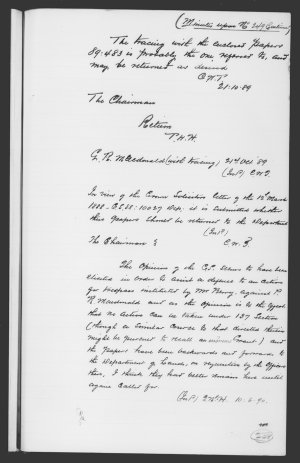 (Minutes upon
The tracing with the enclosed Papers
89:483 is probably the one referred to, and
may be returned as desired
21:10:89
The Chairman
Return
G. R. Macdonald (with tracing) 21st Oct '89
In view of the Crown Solicitor's letter of the March
it is submitted whether
the papers should be returned to the Department
The Chairman
The Opinion of the C.S. seems to have been
elicited in order to assist in defence to an action
for trespass instituted by Mr. against
R. Macdonald and as the opinion is to the effect
that no action can be taken under 137 Section
(though a similar course to that directed therein
might be pursued to recall an and
the papers have been backwards and forwards to
the Department of Lands, as by the Officers
there, I think they had better remain here until
again called for.